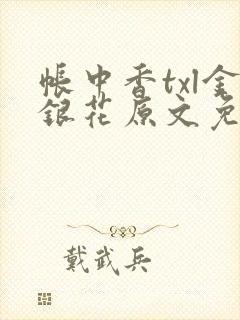 帳中香txl金
銀花原文免
戴武兵